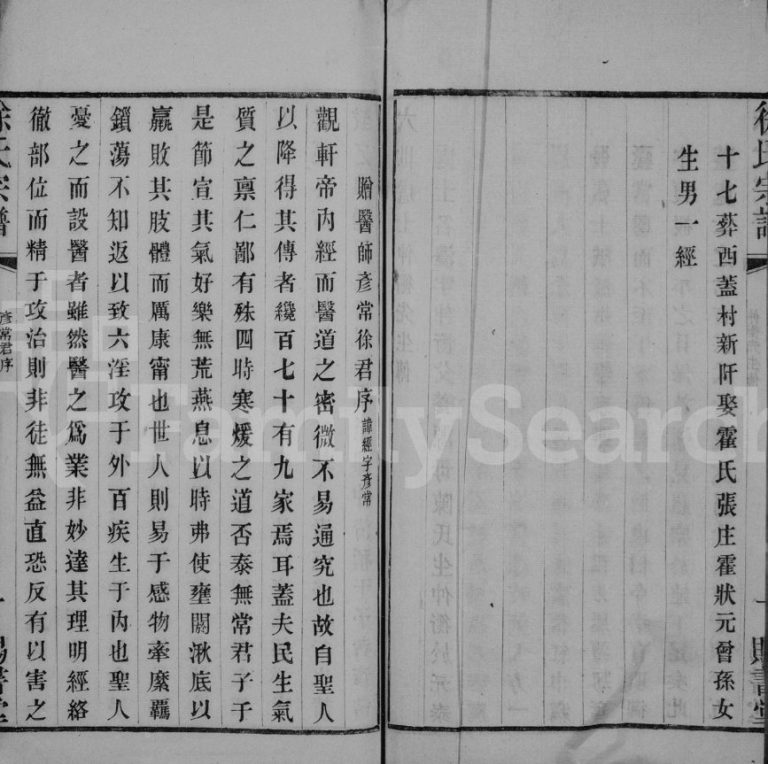 徐氏宗譜
十七葬西蓋村新阡娶霍氏張庄霍狀元曾孫女
生男一經
贈醫師彥常徐君序 諱經字彥常
觀軒帝內經而醫道之密微不易通究也故自聖人
以降得其傳者纔百七十有九家焉耳蓋夫民生氣
質之禀仁鄙有殊四時寒煖之道否泰無常君子于
是節宣其氣好樂無荒燕息以時弗使壅閼湫底以
羸敗其肢體而厲康甯也世人則易于感物牽縻羈
鎖蕩不知返以致六淫攻于外百疾生于內也聖人
憂之而設醫者雖然醫之爲業非妙達其理明經絡
徹部位而精于攻治則非徒無益直恐反有以害之
徐氏宗譜
彥常君序
一
FamilySearch